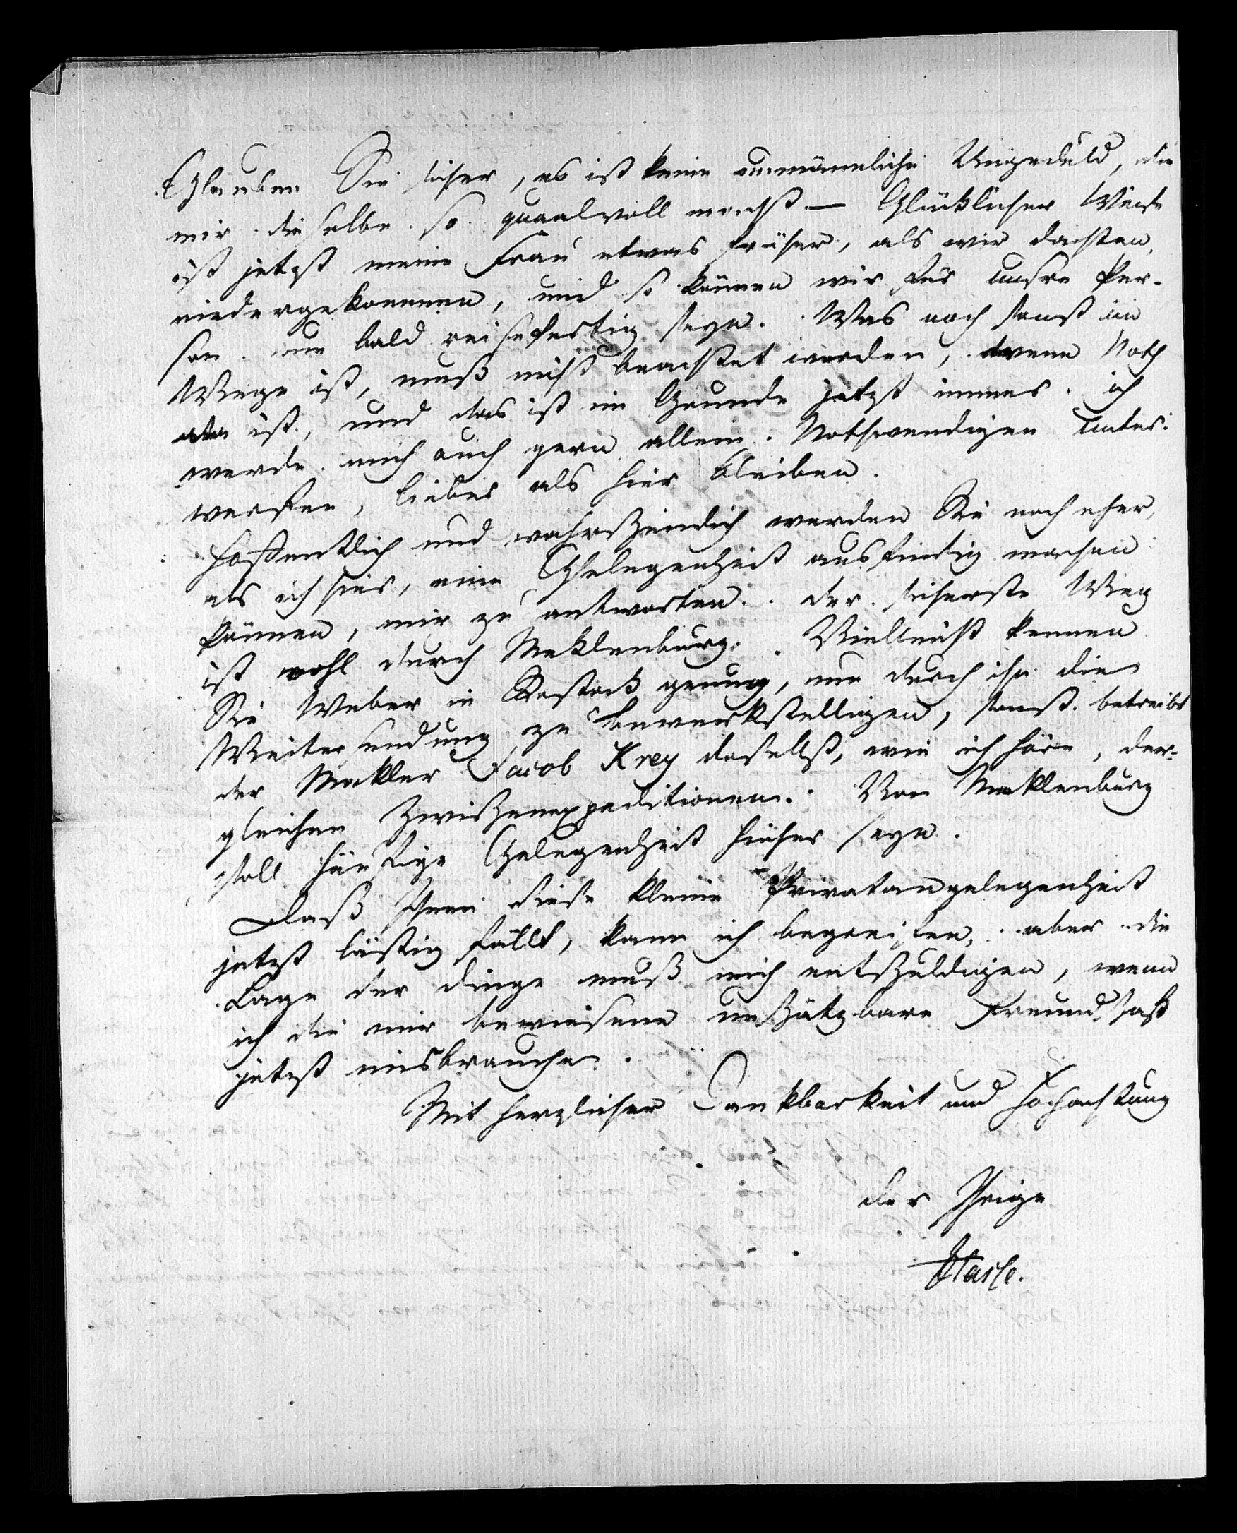 Glauben Sie sicher, es ist keine unmännliche Ungeduld, die
mir dieselbe so quaalvoll macht — Glücklicher Weise
ist jetzt meine Frau etwas früher, als wir dachten,
niedergekommen, und so können wir für unsre Per-
son nun bald reisefertig seyn. Was noch sonst im
Wege ist, muß nicht beachtet werden, wenn Noth
ist, und das ist im Grunde jetzt immer. ich
werde mich auch gern allem Nothwendigen unter-
werfen, lieber als hier bleiben.
Hoffentlich und wahrscheinlich werden Sie noch eher,
als ich hier, eine Gelegenheit ausfindig machen
können, mir zu antworten. der sicherste Weg
ist wohl durch Meklenburg. Vielleicht kennen
Sie Weber in Rostock genung, um durch ihn die
Weitersendung zu bewerkstelligen, sonst betreibt
der Mekler Jacob Krey daselbst, wie ich höre, der-
gleichen Zwischenexpeditionen. Von Meklenburg
soll häufige Gelegenheit hieher seyn.
Daß Ihnen diese kleine Privatangelegenheit
jetzt lästig fällt, kann ich begreifen, aber die
Lage der dinge muß mich entschuldigen, wenn
ich die mir bewiesene unschätzbare Freundschaft
jetzt misbrauche.
Mit herzlicher Dankbarkeit und Hochachtung
der Ihrige
Hasse.